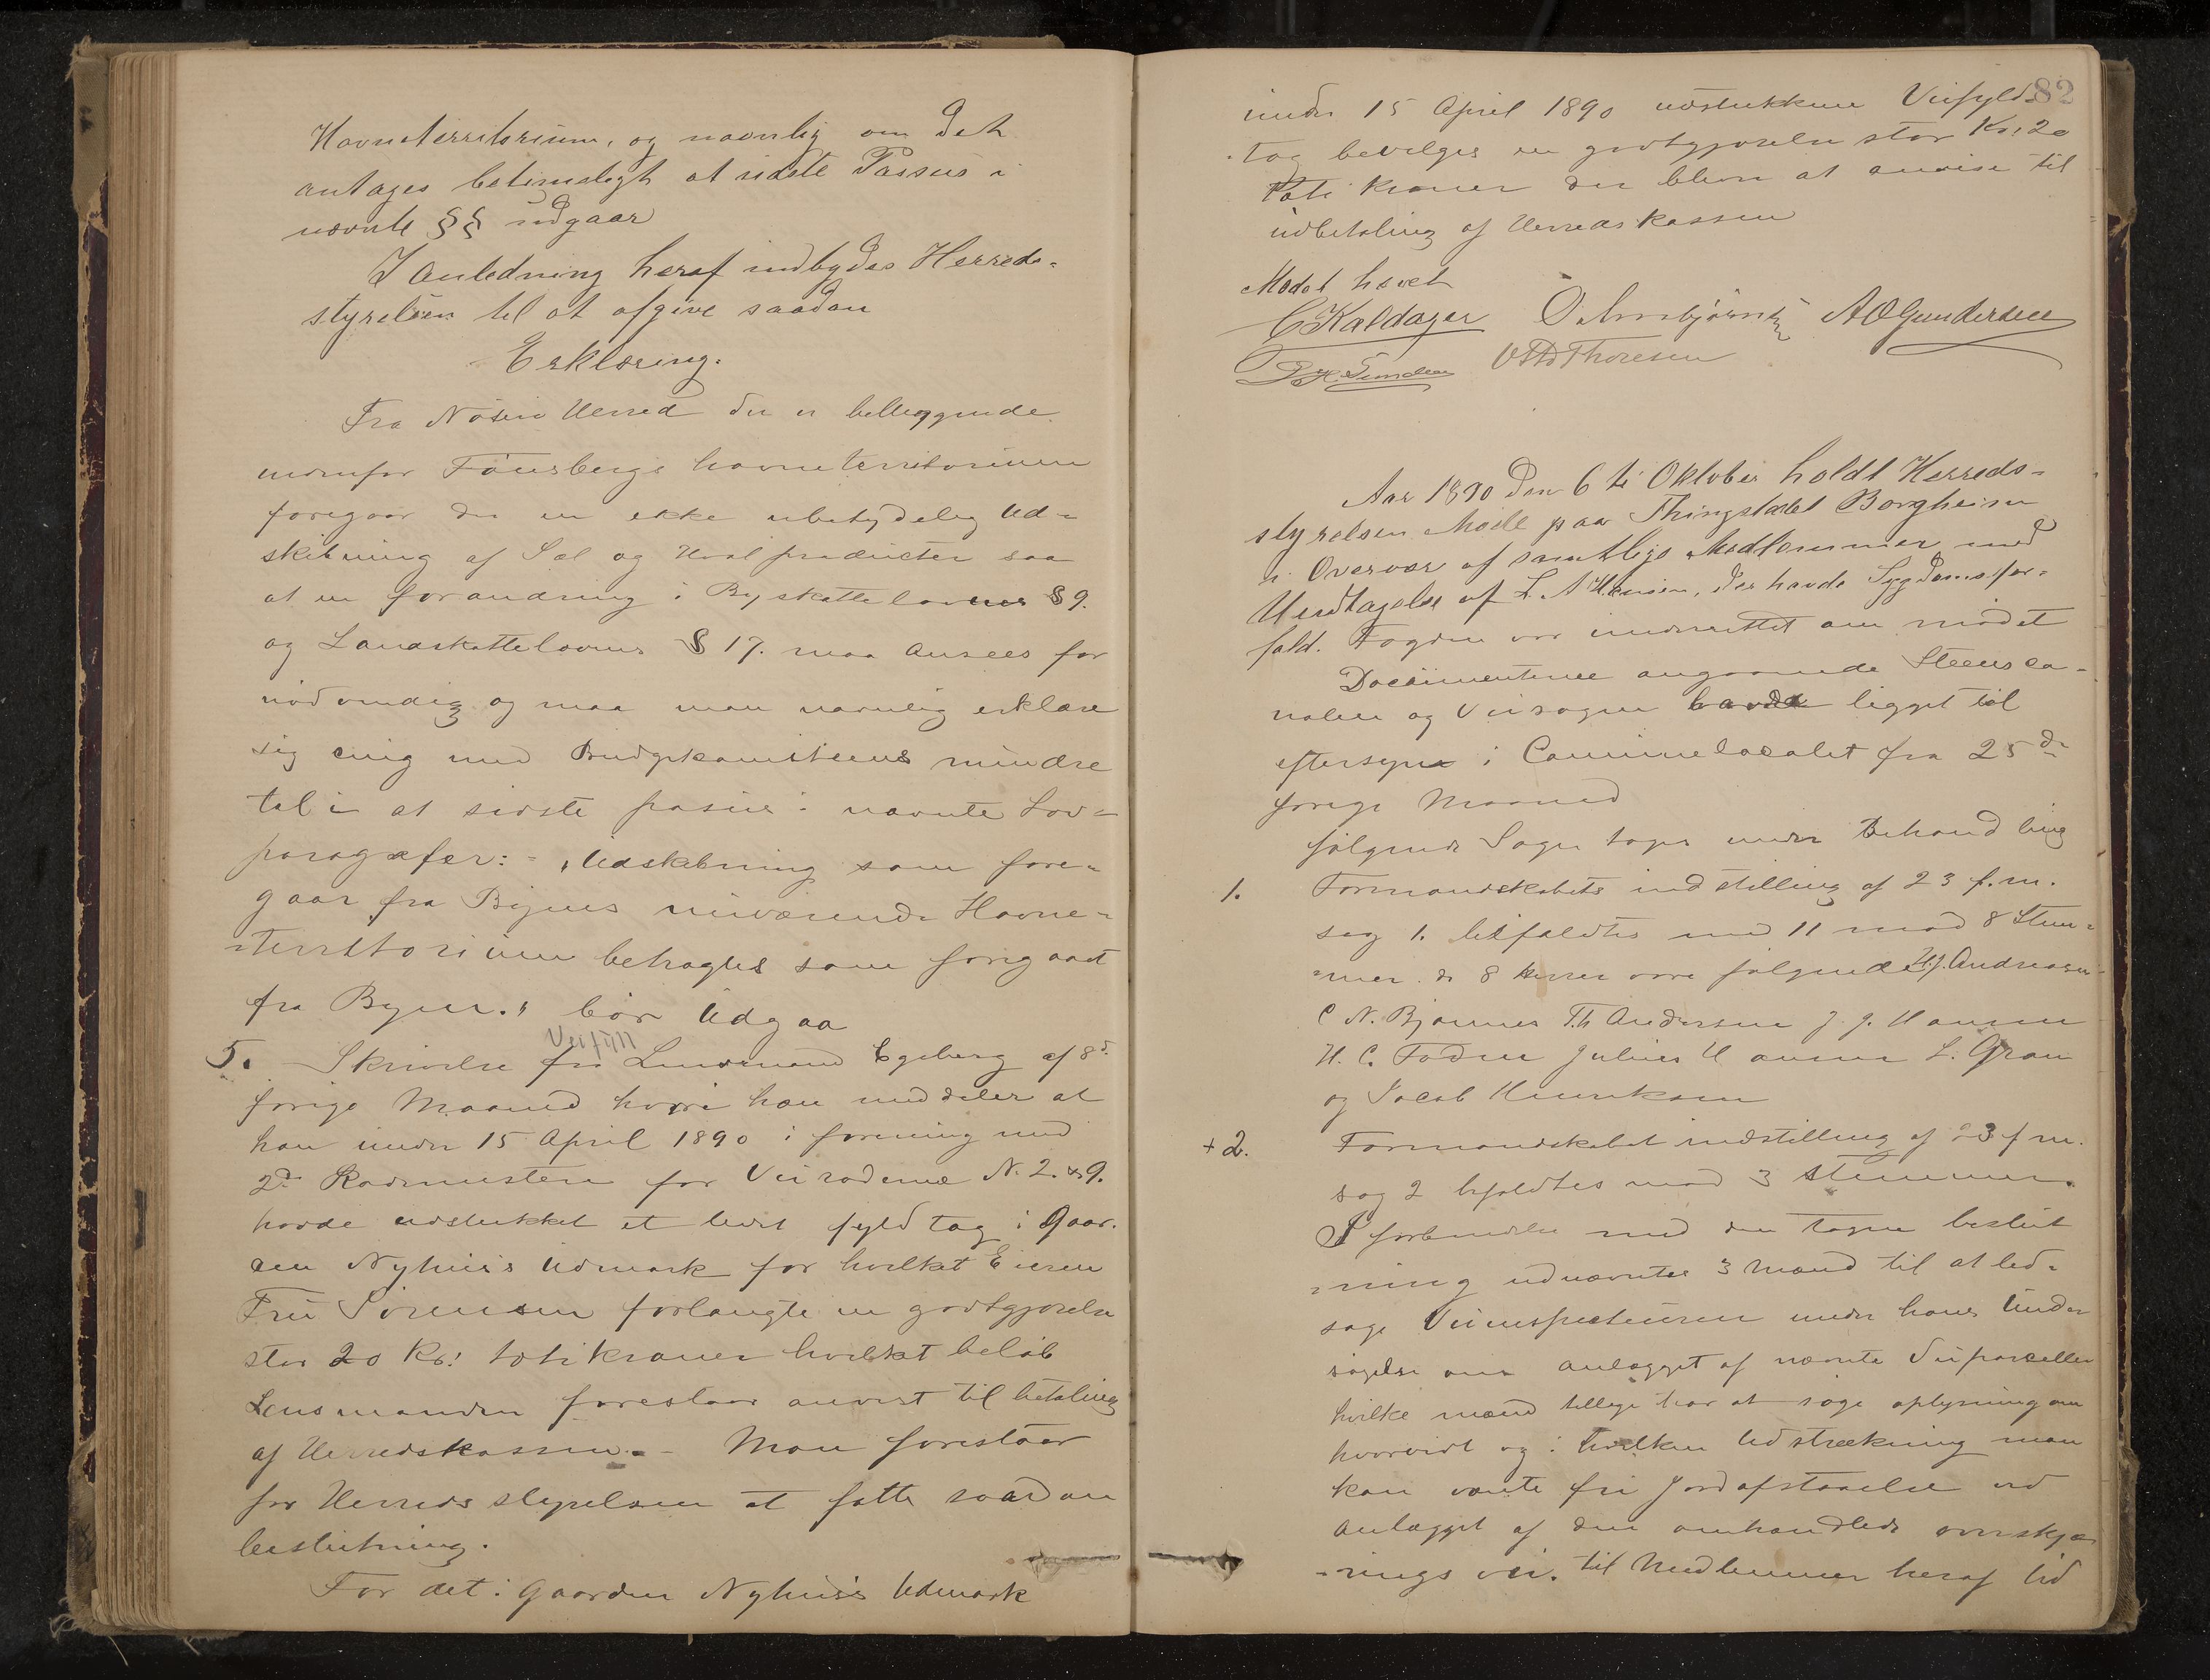 Havneterritorium, og navnlig om det
antages betimeligt at sidste Passus i
nævnte §§ udgaar
I Anledning heraf indbydes Herreds-
styrelsen til at afgive saadan
Erklæring.
Fra Nøterø Herred der er beliggende
indenfor Tønsbergs havneterritorium
foregaar der en ikke ubetydelig Ud-
skibning af Sæl og Hval producter saa
at en forandring i Byskattelovens § 9.
og Landskattelovens § 17. maa ansees for
nødvendig og maa man navnlig erklære
sig enig med Budgetkomiteens mindre
tal i at sidste passus i nævnte Lov-
paragrafer: - "Udskibning som fore-
gaar fra Byens nuværende Havne-
-Territorium betragtes som foregaaet
fra Byen." bør Udgaa
Veifyll
5. Skrivelse fra Lensmand Egeberg af 8d.
forrige Maaned hvori han meddeler at
han under 15 April 1890 i forening med
2de Rodemestere for Veiroderne N. 2. & 9.
havde udstukket et leiet fyldtag i Gaar-
den Nyhuus Udmark for hvilket Eieren
Fru Sørensen forlangte en godtgjørelse
stor 20 Kr: totikroner hvilket beløb
Lensmanden foreslaar anvist til betaling
af Herredskassen. - Man foreslaar
for Herredsstyrelsen at fatte saadan
beslutning.
For det i Gaarden Nyhuus Udmark
82
under 15 April 1890 udstukkene Veifyld
tag bevilges en godtgjørelse stor Kr. 20
Toti kroner der bliver at anvise til
udbetaling af Herredskassen
Mødet hævet
C Kaldager O Arnbjørnsen A O Gundersen
Otto Thoresen
Aar 1890 den 6te Oktober holdt Herreds-
styrelsen Møde paa Thingstedet Borgheim
i Overvær af samtlige Medlemmer med
Undtagelse af L. A Hansen, der havde Sygdomsfor-
fald. Fogden var underrettet om mødet
Documenterne angaaende Steensca-
nalen og Veisagen havde ligget til
eftersyn i Communelocalet fra 25de
forrige Maaned
følgende Sager toges under Behandling
1. Formandskabets indstilling af 23 f.m.
sag 1. bifaldtes med 11 mod 8 Stem-
mer. de 8 herrer vare følgende H.J. Andreasen
C N. Bjønnes Th Andersen J. J. Hansen
H. C. Foden Julius Hansen L. Gran
og Jacob Henriksen
+ 2. Formandskabet indstilling af 23 f m.
sag 2 bifaldtes mod 3 Stemmer.
I forbindelse med den tagne beslut
-ning udnævntes 3 Mænd til at led-
sage Veiinspecteuren under hans Under
søgelse om anlægget af nævnte Veiparceller
hvilke mænd tillige har at søge oplysning om
hvorvidt og i hvilken Udstrækning man
kan vente fri Jordafstaaelse ved
anlægget af den omhandlede overskjæ
-rings vei. til Medlemmer heraf Ud